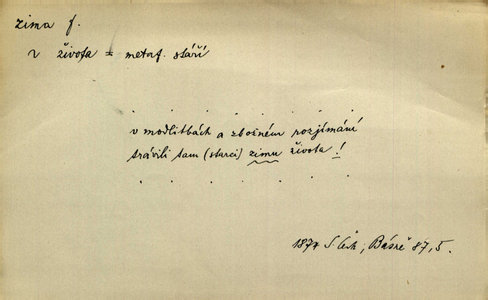 zima f.
~ života = metaf. stáří
. . . . . .
v modlitbách a zbožném rozjímání
trávili tam (starci) zimu života!
. . . . .
1874 S Čech, Básně 87, 5.